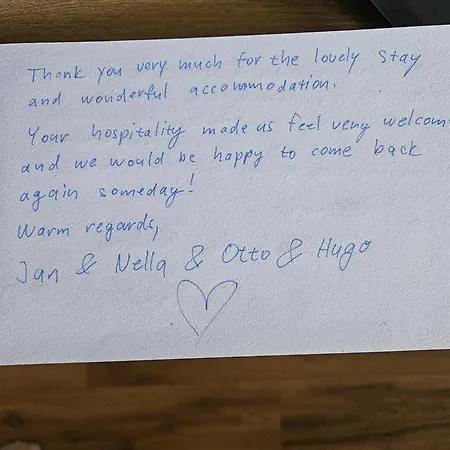 Thank you very much for the lovely stay
and wonderful accommodation.
Your hospitality made us feel very welcom
and we would be happy to come back
again someday!
Warm regards,
Jan & Nella & Otto & Hugo